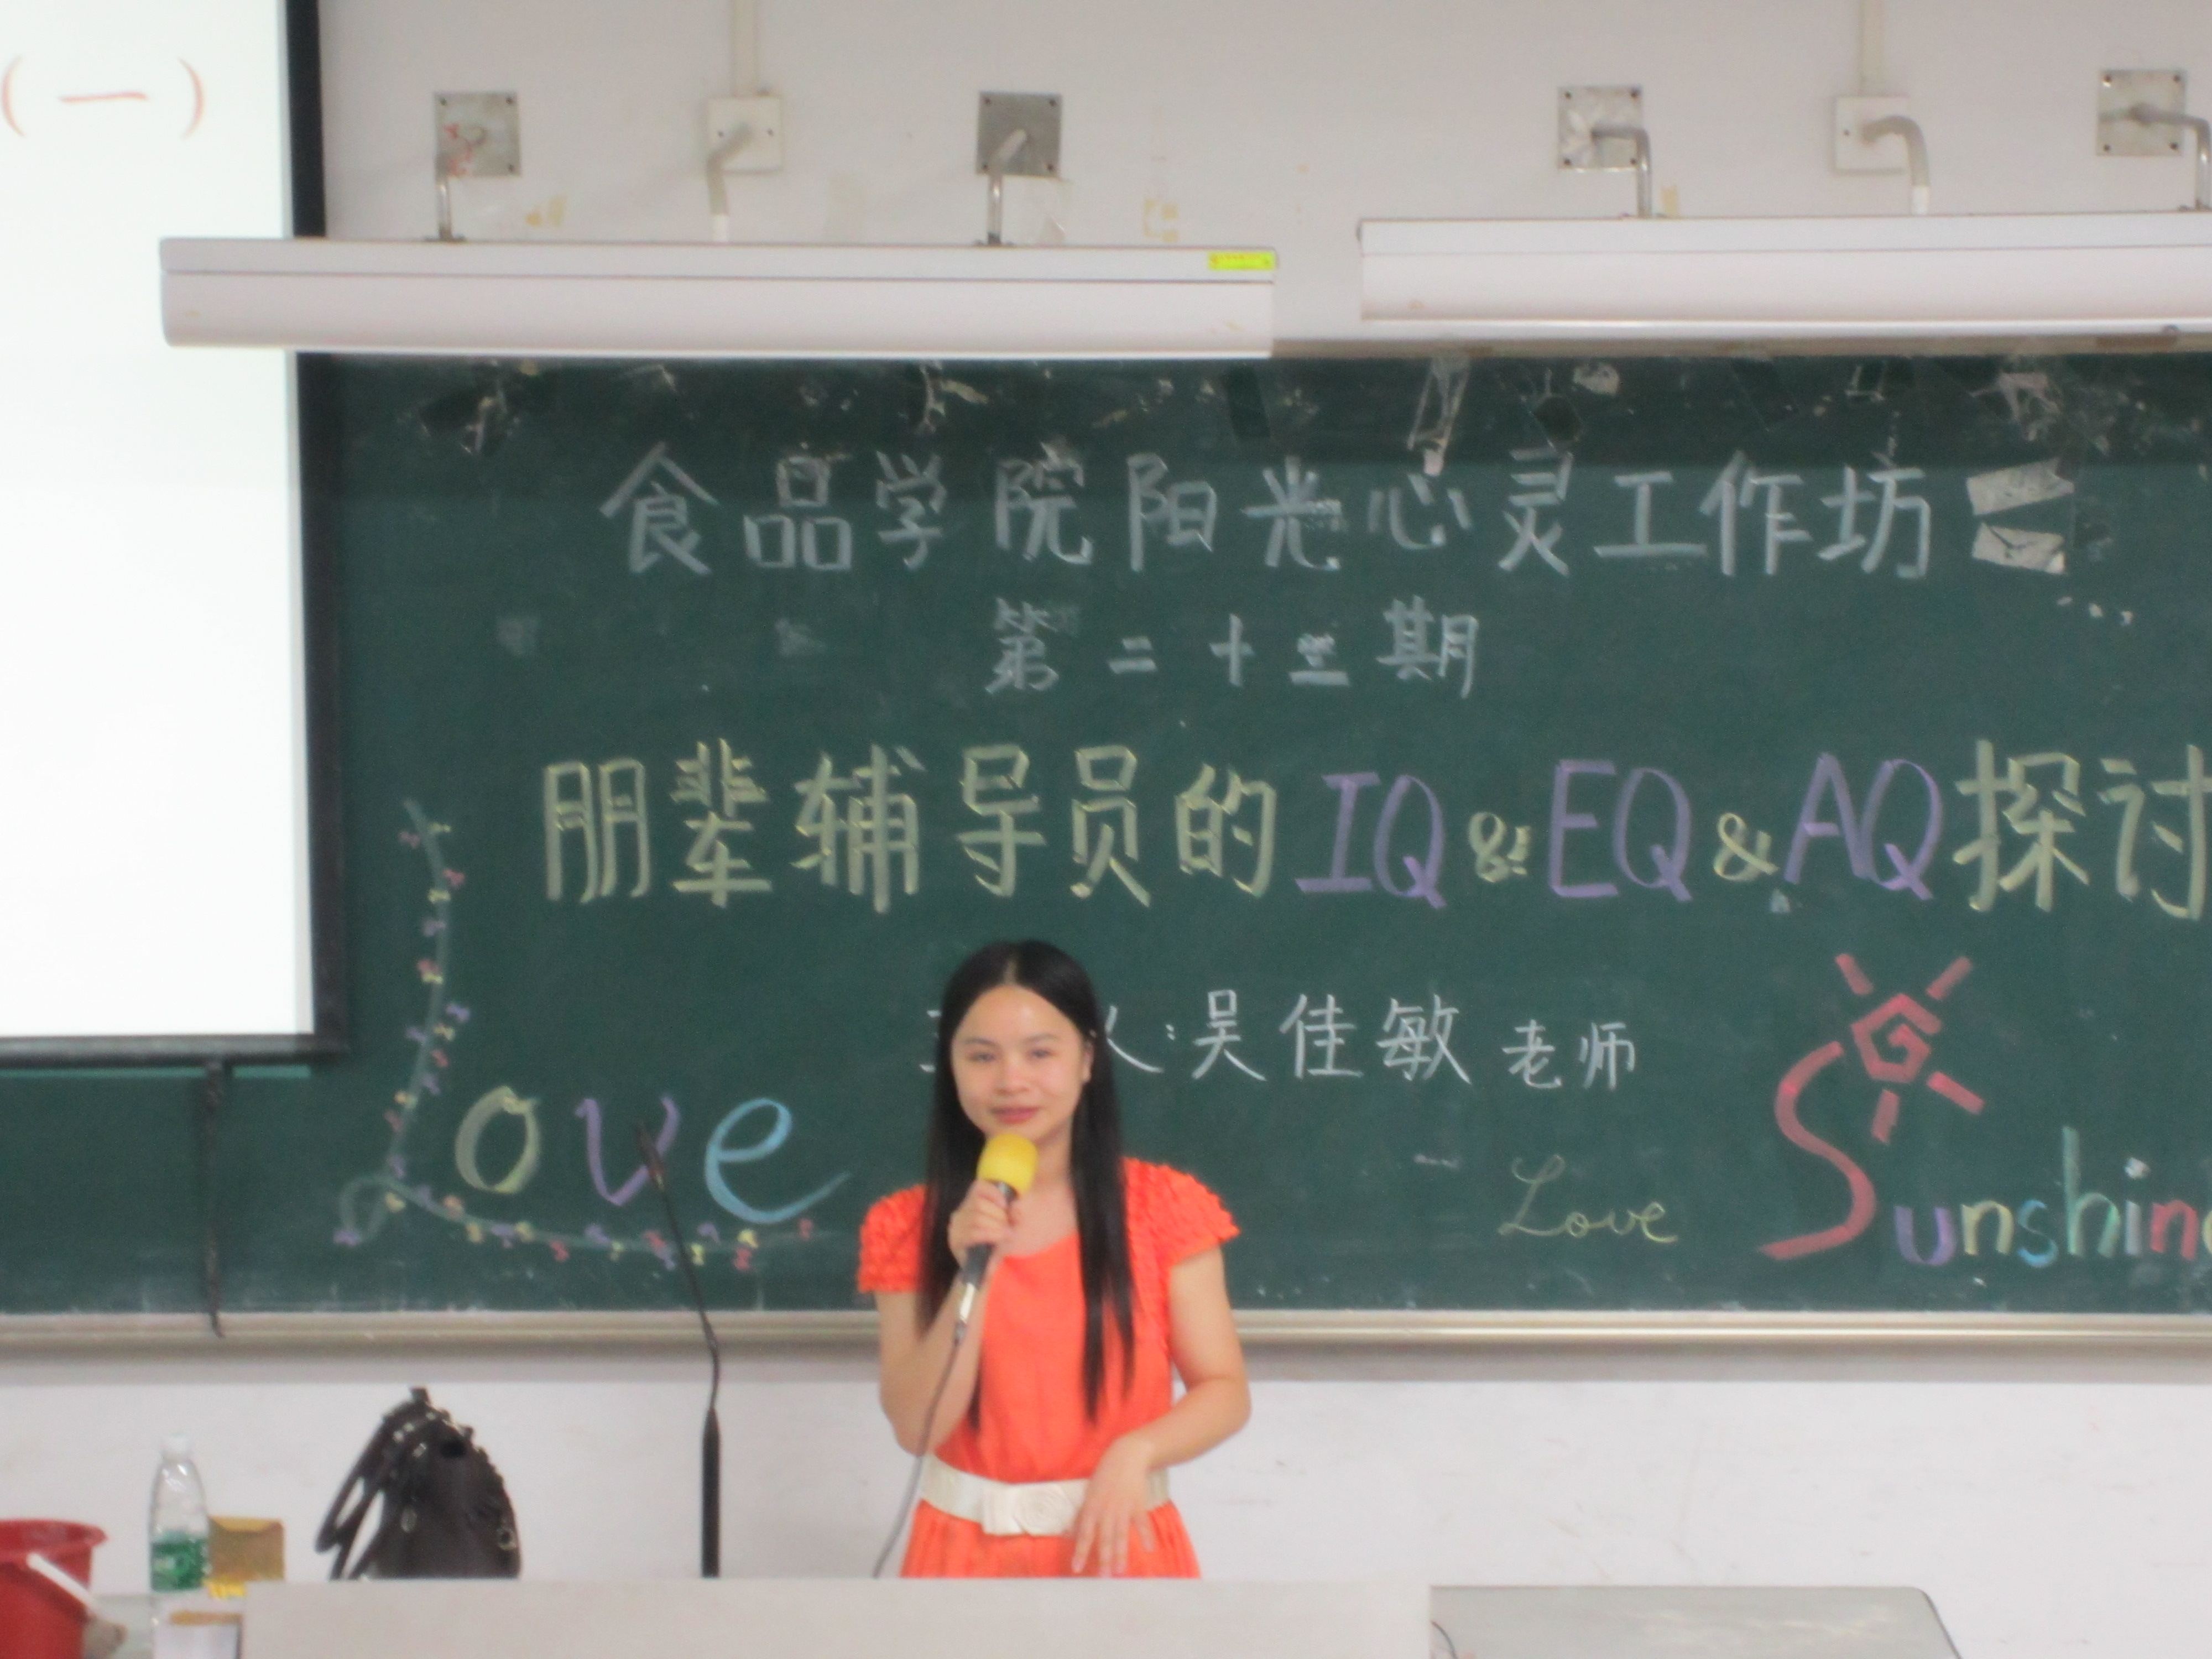 （一）
食品学院阳光心灵工作坊
第二十三期
朋辈辅导员的IQ&EQ&AQ探讨
人：吴佳敏老师
Love
Love
Sunshin